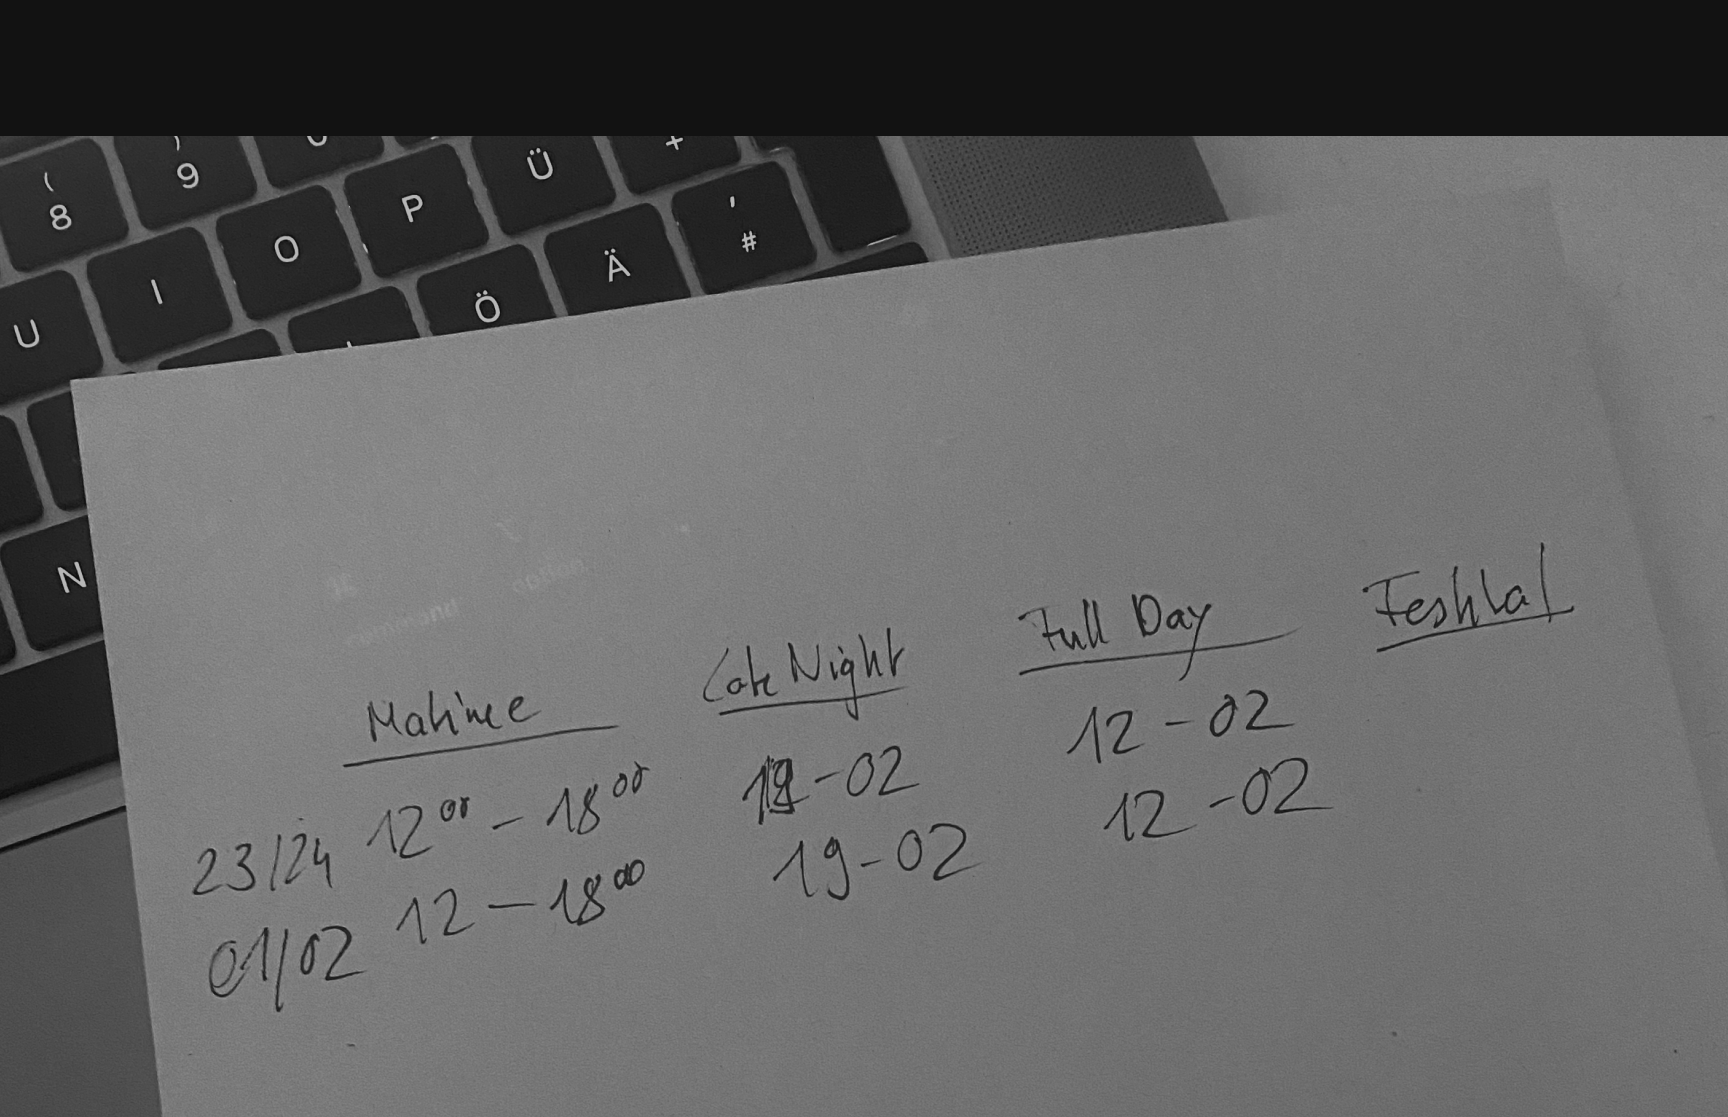 ( ) +
8 9 Ü '
U I O P Ö Ä #
N
command option
Matinee Late Night Full Day Festival
23/24 12⁰⁰ - 18⁰⁰ 19-02 12-02
01/02 12 - 18⁰⁰ 19-02 12-02